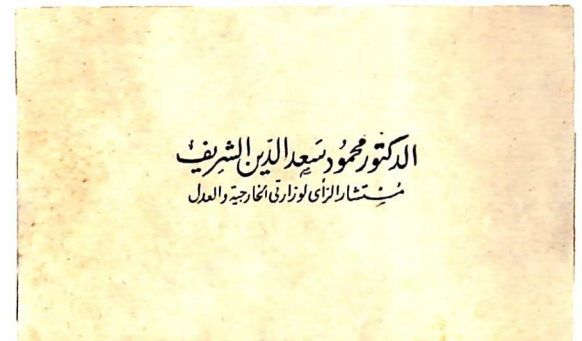 الدكتور محمود سعد الدين الشريف
مستشار الرأى لوزارتى الخارجية والعدل